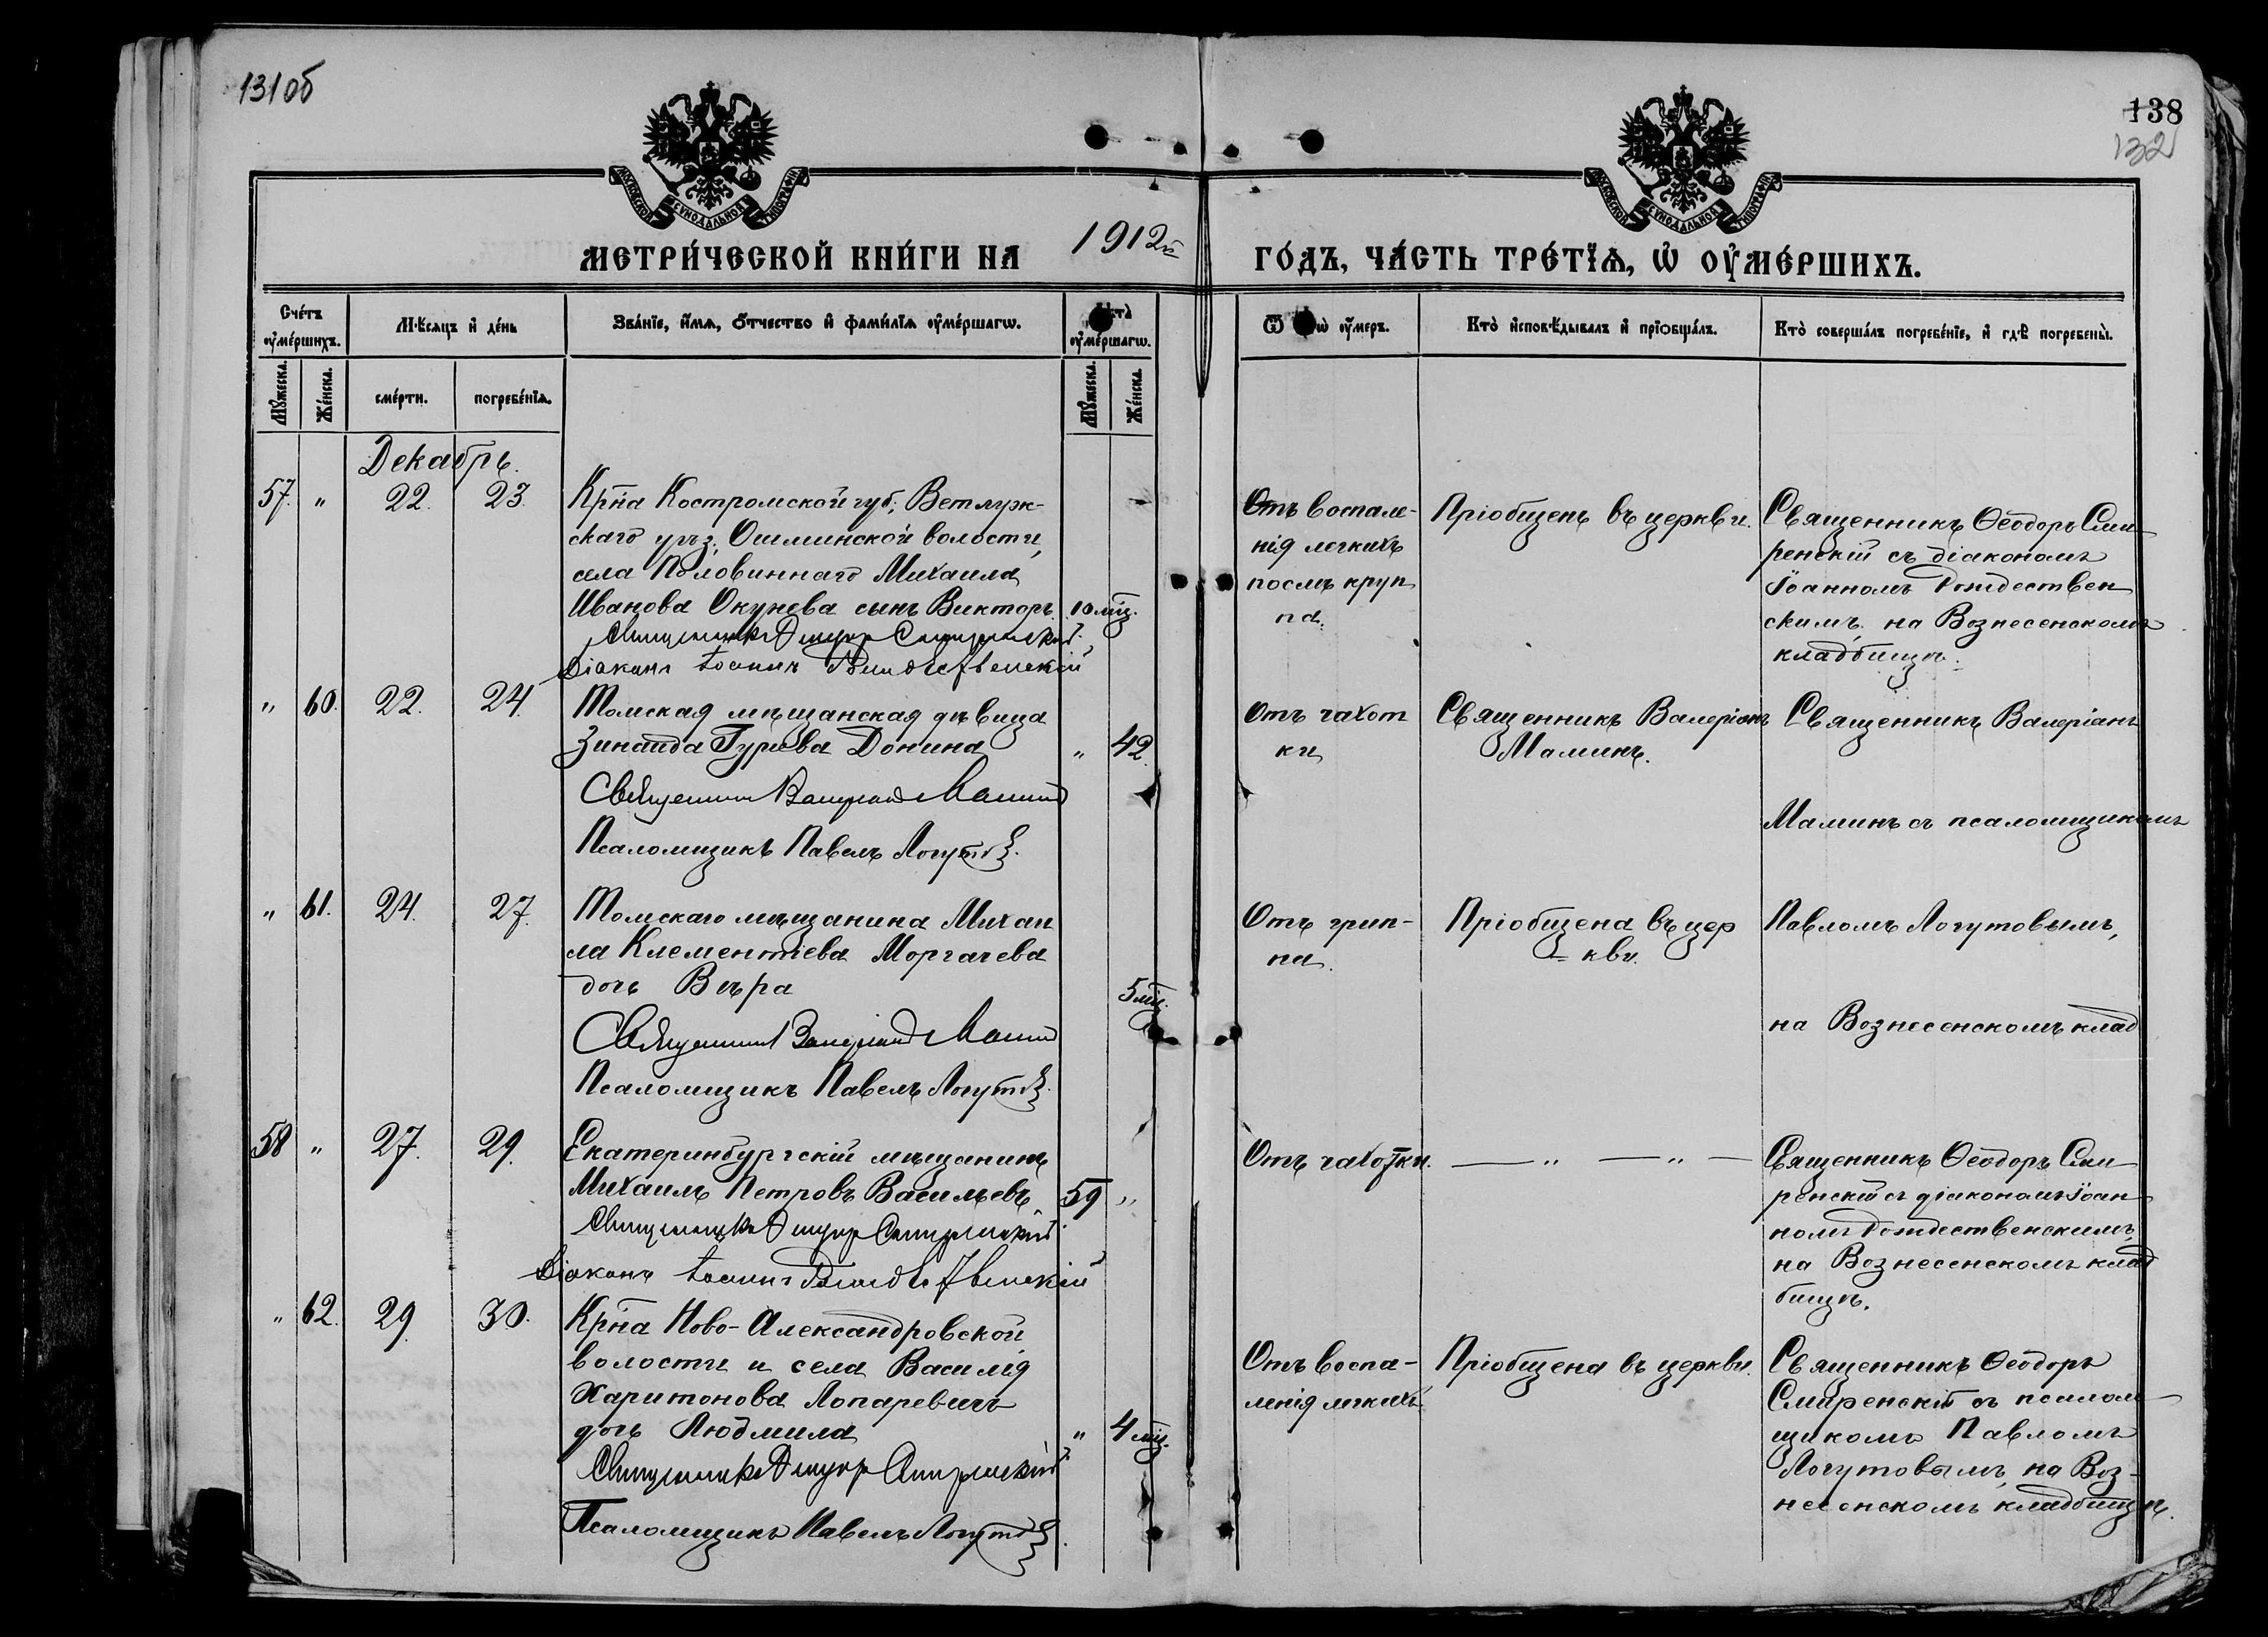 131об
138
132
МОСКОВСКОЙ СѴНОДАЛЬНОЙ ТИПОГРАФІИ
МОСКОВСКОЙ СѴНОДАЛЬНОЙ ТИПОГРАФІИ
МЕТРИ́ЧЕСКОЙ КНИ́ГИ НА 1912й ГО́ДЪ, ЧА́СТЬ ТРЕ́ТЇѦ, Ѡ҆ ОУ҆МЕ́РШИХЪ.
Сче́тъ оу҆ме́ршихъ.
Мѣ́сѧцъ и҆ де́нь
Зва́нїе, и҆́мѧ, ѻ҆́тчество и҆ фами́лїѧ оу҆ме́ршагѡ.
оу҆ме́ршагѡ.
Ѿ оу҆́меръ.
Кто̀ и҆сповѣ́дывалъ и҆ прїѻбща́лъ.
Кто̀ соверша́лъ погребе́нїе, и҆ гдѣ̀ погребены̀.
Мꙋ́жеска.
Же́нска.
сме́рти.
погребе́нїѧ.
Мꙋ́жеска.
Же́нска.
Декабрь.
57. " 22. 23.
Крн̃а Костромской губ., Ветлуж-
скаго уѣз., Ошминской волости,
села Половиннаго Михаила
Иванова Окунева сынъ Викторъ 10 мц̃.
Священникъ Ѳеодоръ Смиренскій.
Діаконъ Іоаннъ Рождественскій
Отъ воспале-
нія легкихъ
послѣ круп
па.
Пріобщенъ въ церкви.
Священникъ Ѳеодоръ Сми
ренскій съ діакономъ
Іоанномъ Рождествен
скимъ на Вознесенскомъ
кладбищѣ.
" 60. 22. 24.
Томская мѣщанская дѣвица
Зинаида Гурьева Донина " 42.
Священникъ Валеріанъ Маминъ
Псаломщикъ Павелъ Логутовъ.
Отъ чахот
ки
Священникъ Валеріанъ
Маминъ.
Священникъ Валеріанъ
Маминъ съ псаломщикомъ
" 61. 24. 27.
Томскаго мѣщанина Михаи
ла Клементіева Моргачева
дочь Вѣра 5 мц̃.
Священникъ Валеріанъ Маминъ
Псаломщикъ Павелъ Логутовъ.
Отъ грип-
па.
Пріобщена въ цер
кви.
Павломъ Логутовымъ,
на Вознесенскомъ клад
58 " 27. 29.
Екатеринбургскій мѣщанинъ
Михаилъ Петровъ Васильевъ 59 "
Священникъ Ѳеодоръ Смиренскій.
Діаконъ Іоаннъ Рождественскій
Отъ чахотки. — " — " —
Священникъ Ѳеодоръ Сми
ренскій съ діакономъ Іоан
номъ Рождественскимъ,
на Вознесенскомъ клад
бищѣ.
" 62. 29. 30.
Крн̃а Ново-Александровской
волости и села Василія
Харитонова Лопаревичъ
дочь Людмила " 4 мц̃.
Священникъ Ѳеодоръ Смиренскій
Псаломщикъ Павелъ Логутовъ.
Отъ воспа-
ленія легкихъ
Пріобщена въ церкви.
Священникъ Ѳеодоръ
Смиренскій съ псалом
щикомъ Павломъ
Логутовымъ, на Воз-
несенскомъ кладбищѣ.